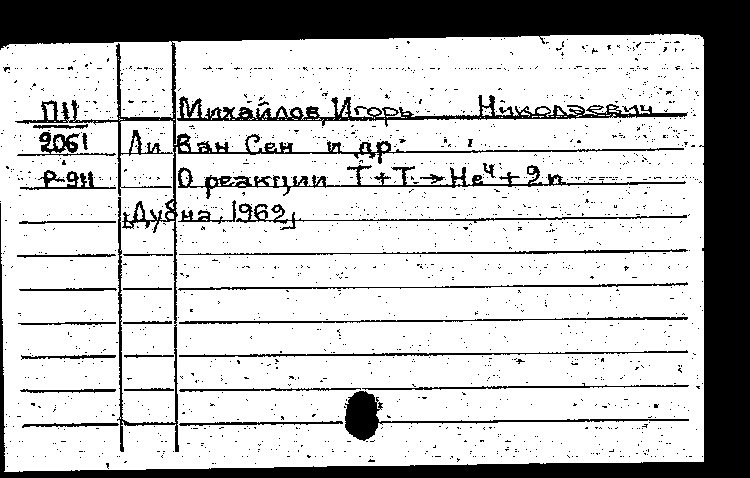 П11 Михайлов, Игорь Николаевич
2061 Ли Ван Сен и др.
Р-911 О реакции T + T → He⁴ + 2n
[Дубна, 1962]